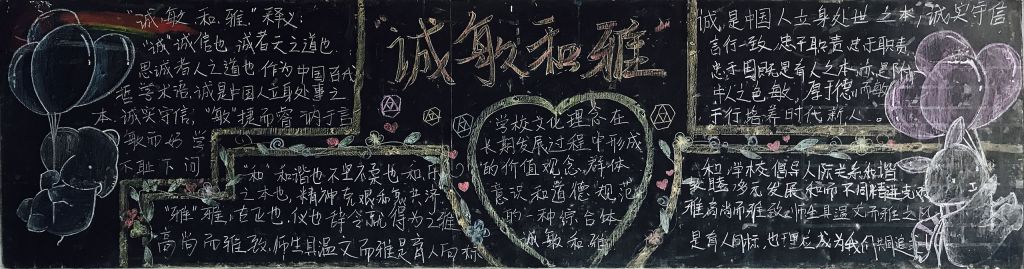 诚敏和雅
"诚敏和雅"释义:
"诚"诚信也 诚者天之道也
思诚者人之道也 作为中国古代
哲学术语,诚是中国人立身处事之
本,诚实守信,"敏"捷而睿 讷于言
敏而好学
不耻下问
"和"和谐也
之本也,精神
"雅"雅,正也,仪也 辞令就得为之雅
高尚而雅致,师生具温文而雅是育人目标
学校文化理念在
长期发展过程中形成
的价值观念,群体
意识和道德规范
的一种综合体
诚敏和雅
诚是中国人立身处世之本,诚实守信
言行一致,忠于职责,忠于职责,
忠于国既是育人之本,亦是
中人之色敏,厚于德,而敏
于行培养时代新人。
和,学校倡导人际关系和谐
发展,和而不同
雅高尚而雅致,师生具温文而雅之
是育人目标,也理应成为我们共同追